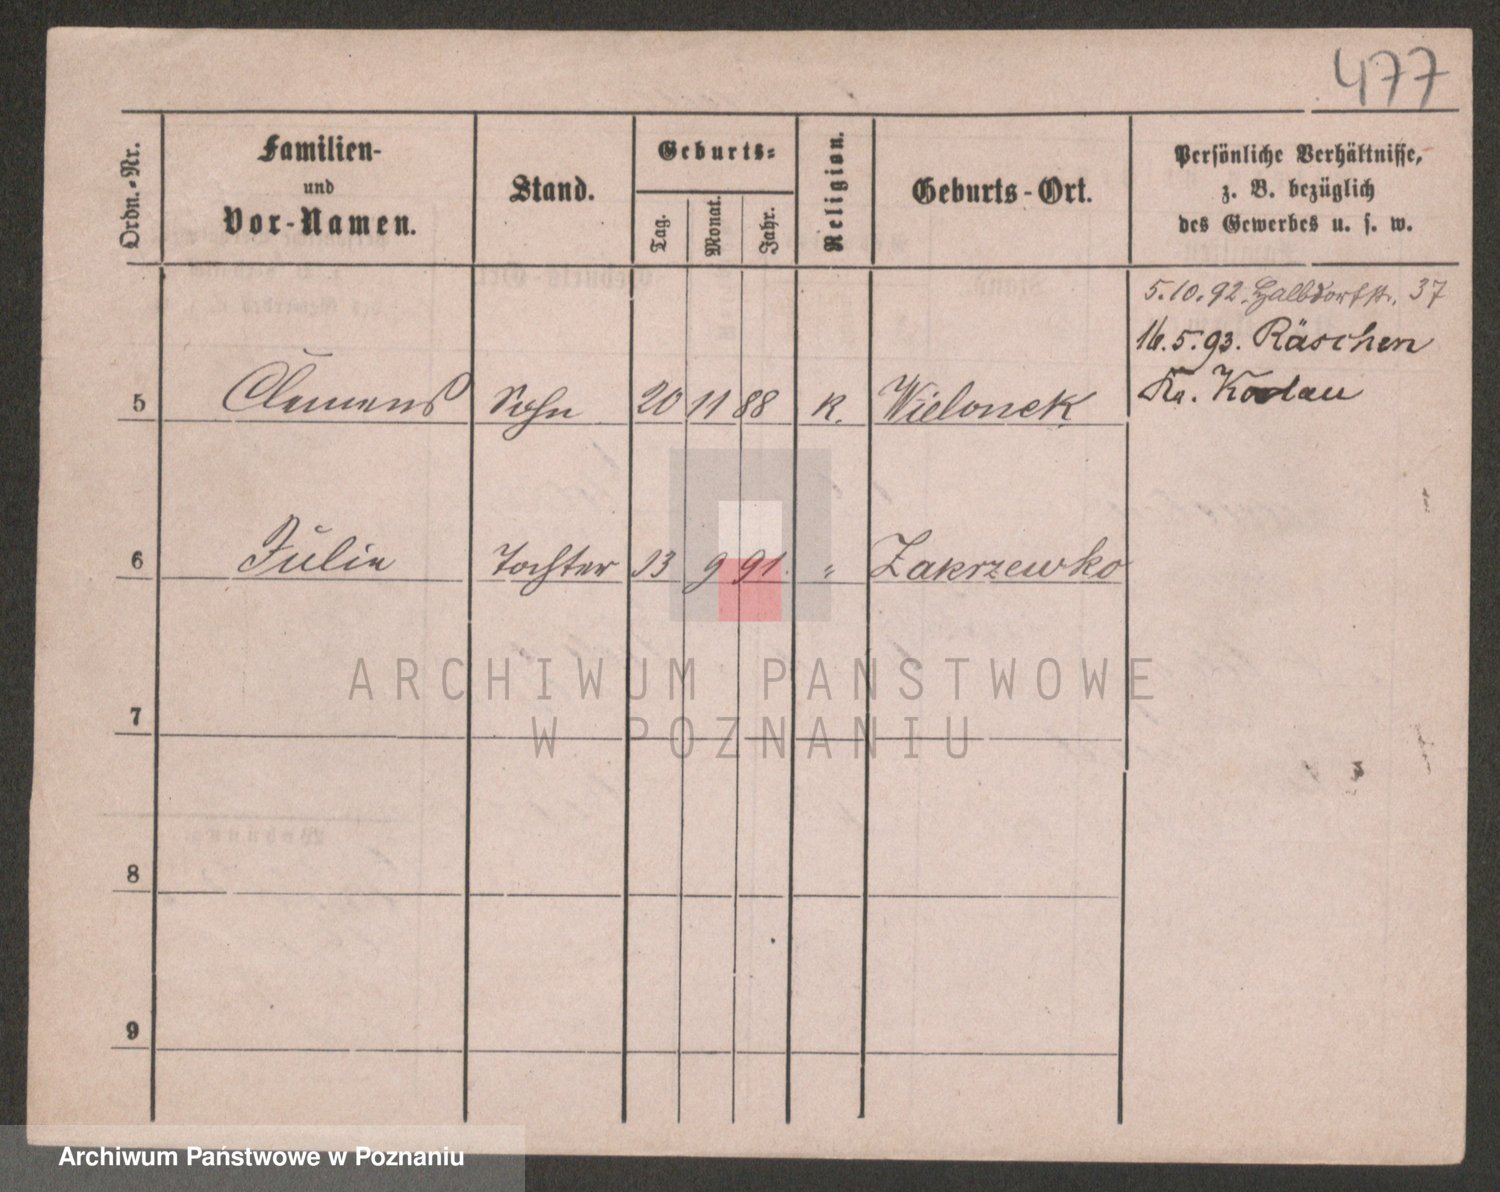 477
Ordn.-Nr.
Familien-
und
Vor-Namen.
Stand.
Geburts-
Tag.
Monat.
Jahr.
Religion.
Geburts-Ort.
Persönliche Verhältnisse,
z. B. bezüglich
des Gewerbes u. s. w.
5.10.92. Halbdorfstr. 37
16.5.93. Räschen
5 Clemens Sohn 20 11 88 k. Wielonek
6 Julie Tochter 13 9 91. " Zakrzewko
7
8
9
ARCHIWUM PAŃSTWOWE
W POZNANIU
Archiwum Państwowe w Poznaniu